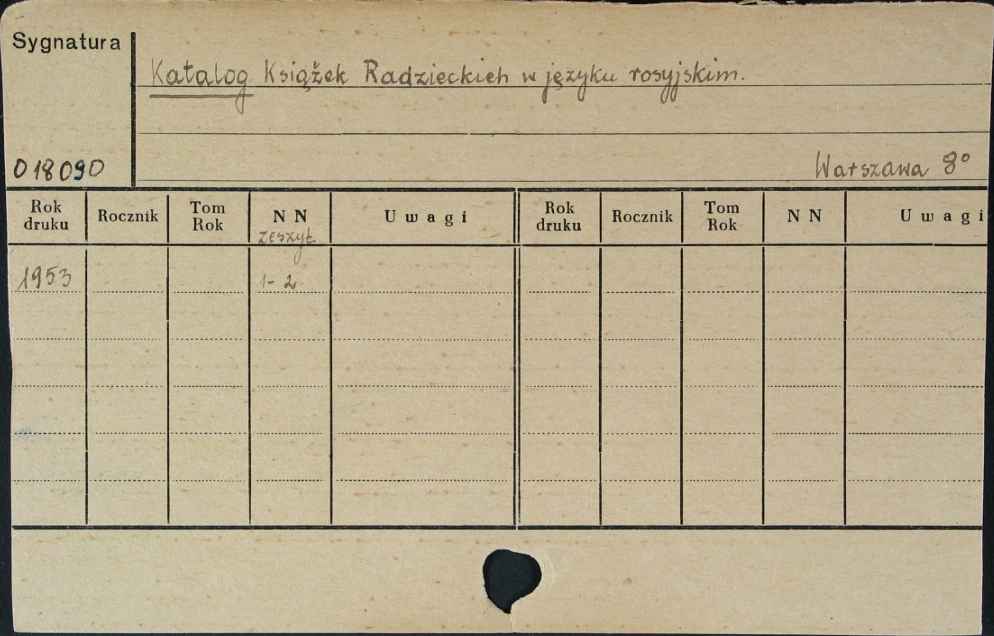 Sygnatura
Katalog Książek Radzieckich w języku rosyjskim.
018090
Warszawa 8°
Rok druku Rocznik Tom Rok N N zeszyt Uwagi Rok druku Rocznik Tom Rok N N Uwagi
1953 1-2